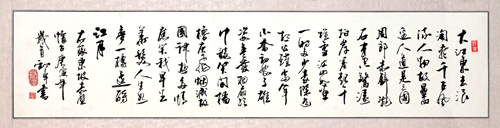 大江東去浪
淘盡千古風
流人物故壘西
邊人道是三國
周郎赤壁亂
石穿空驚濤
拍岸卷起千
堆雪江山如畫
一時多少豪傑遙
想公瑾當年
小喬初嫁了雄
姿英發羽扇綸
巾談笑間檣
櫓灰飛煙滅故
國神遊多情
應笑我早生
華髮人生如
夢一樽還酹
江月
右蘇東坡赤壁
懷古庚寅年
月書